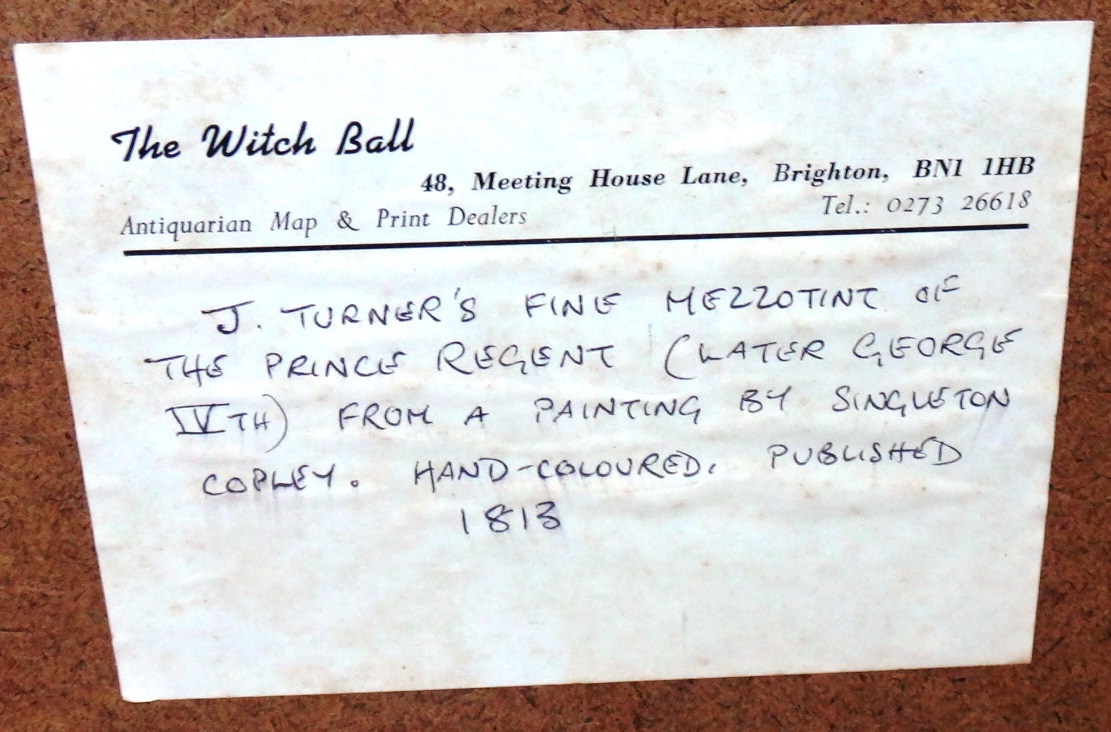 The Witch Ball
48, Meeting House Lane, Brighton, BN1 1HB
Antiquarian Map & Print Dealers Tel.: 0273 26618
J. TURNER'S FINE MEZZOTINT OF
THE PRINCE REGENT (LATER GEORGE
IVTH) FROM A PAINTING BY SINGLETON
COPLEY. HAND-COLOURED. PUBLISHED
1813